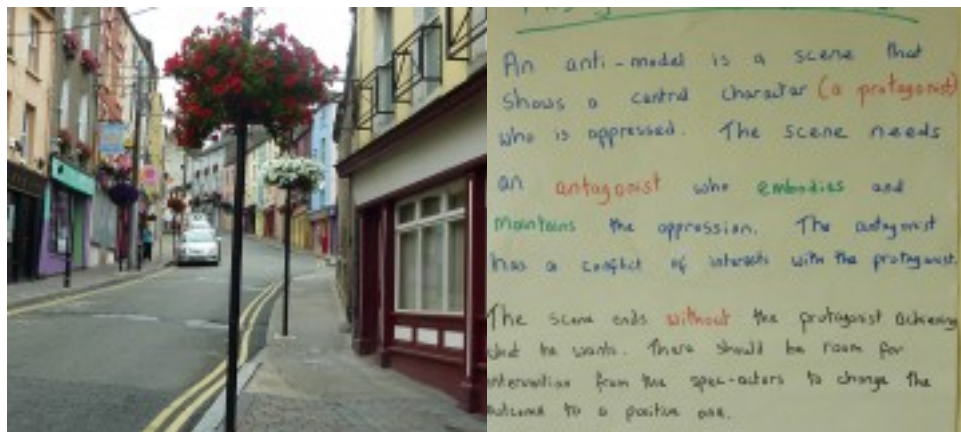 An anti-model is a scene that
shows a central character (a protagonist)
who is oppressed. The scene needs
an antagonist who embodies and
maintains the oppression. The antagonist
has a conflict of interests with the protagonist.
The scene ends without the protagonist achieving
what he wants. There should be room for
intervention from the spec-actors to change the
outcome to a positive one.